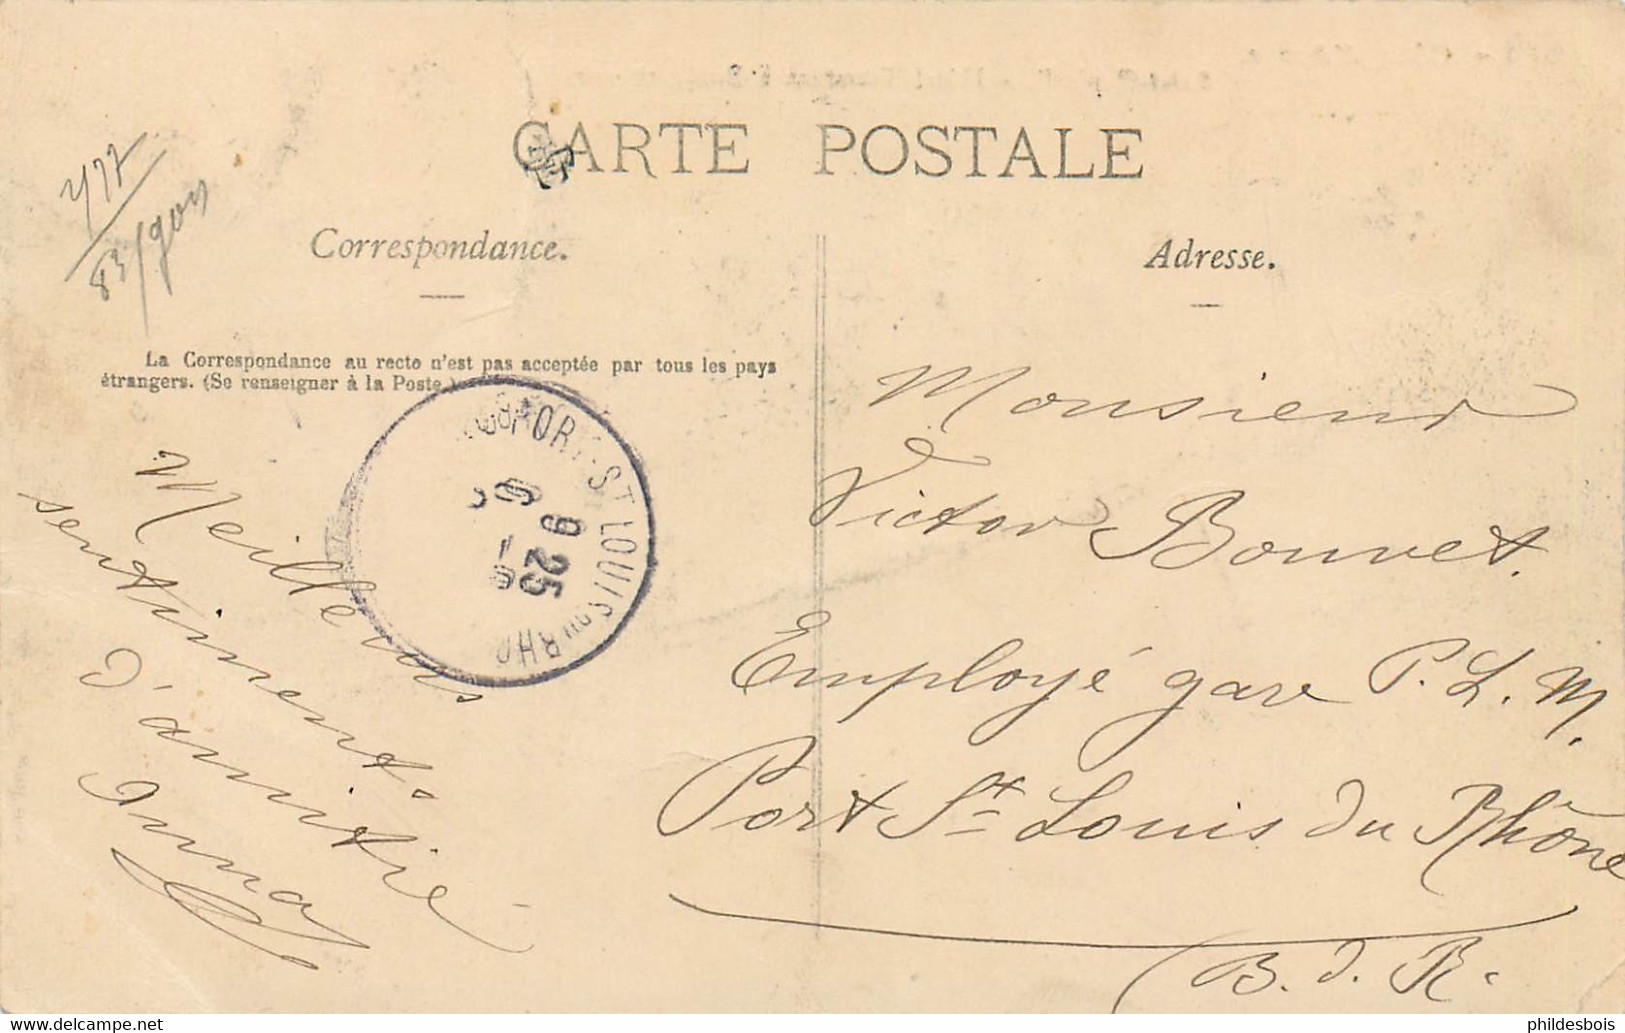 CARTE POSTALE
Correspondance.
Adresse.
La Correspondance au recto n'est pas acceptée par tous les pays
étrangers. (Se renseigner à la Poste.)
477
83/900
PORT-ST LOUIS DU RHO
9 25
Meilleurs
sentiments
d'amitié
Anna
Monsieur
Victor Bouvet.
Employé gare P. L. M.
Port St Louis du Rhône
(B. d. R.
phildesbois